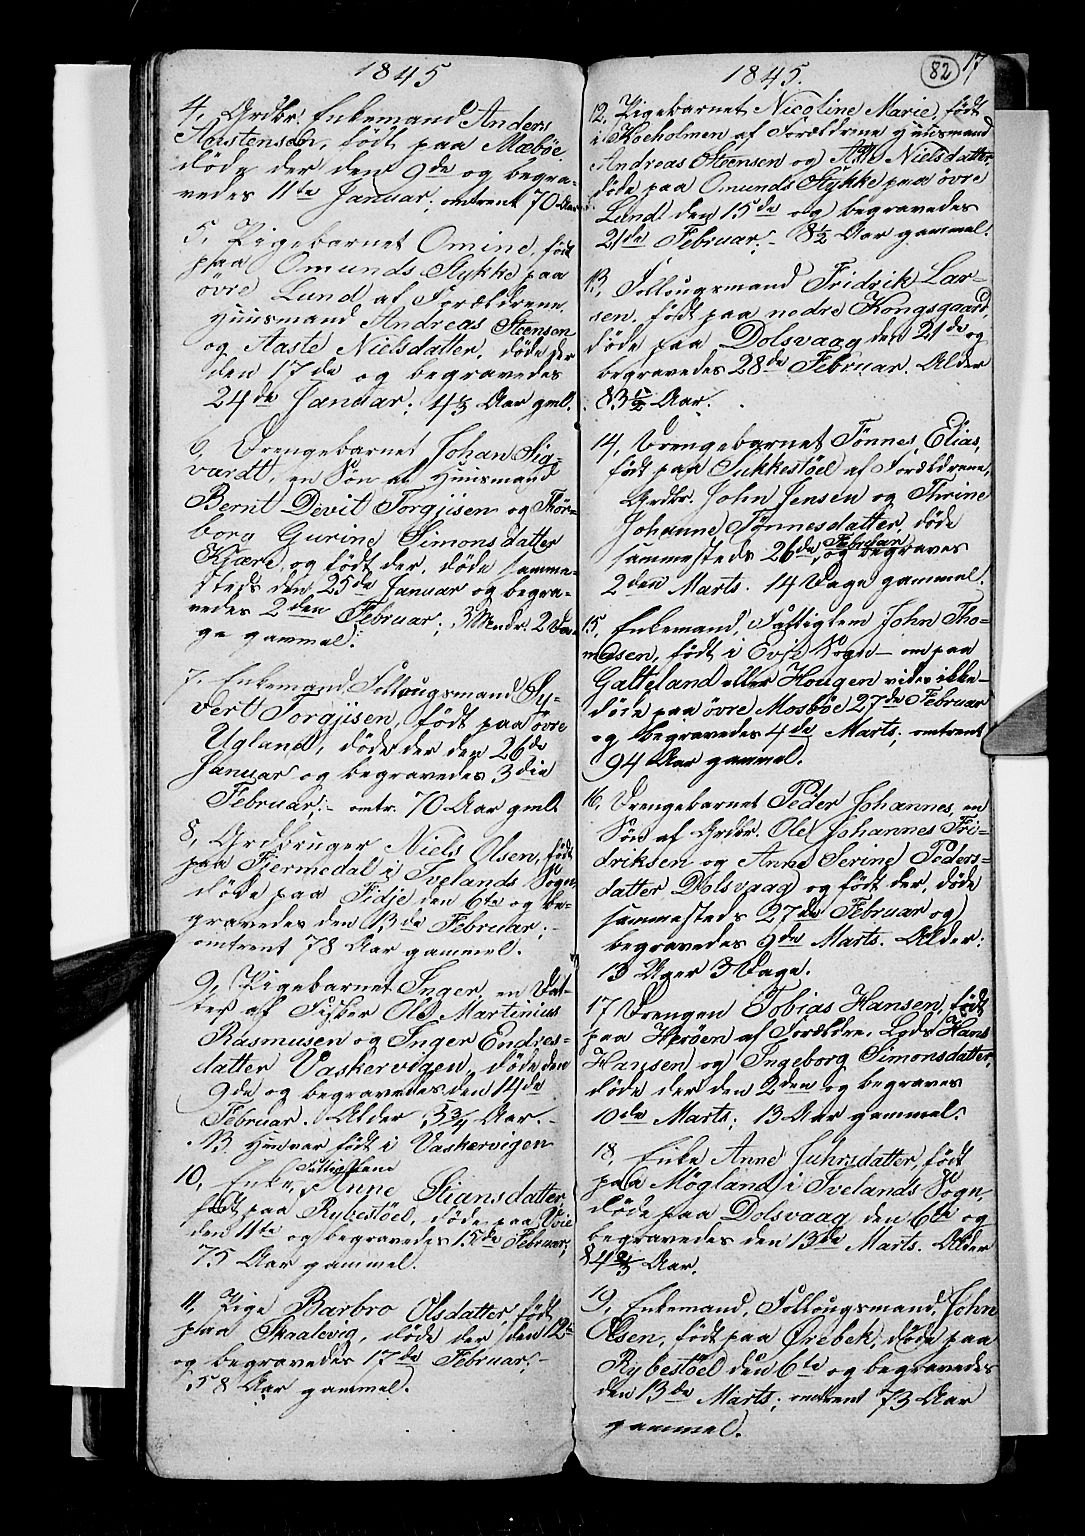 1845
4, Grdbr. Enkemand Anders
Torstensen, født paa Mæbøe,
døde der den 9de og begra-
vedes 11te Januar, omtrent 70 Aar
5, Pigebarnet Omine, født
paa Omunds Stykke paa
øvre Lund af Forældrene
Huusmand Andreas Steensen
og Aaste Nielsdatter, døde der
den 17de og begravedes
24de Januar; 4⅓ Aar gml.
6, Drengebarnet Johan Sig-
vardt, en Søn af Huusmand
Bernt Devit Torgjisen og Thor-
borg Gurine Simonsdatter
Kjære, og født der, døde samme-
steds den 25de Januar og begra-
vedes 2den Februar; 3 Mndr. 2 Da-
ge gammel.
7, Enkemand, Follougsmand Sy-
vert Torgjisen, født paa øvre
Ugland, døde der den 26de
Januar og begravedes 3die
Februar; omtr. 70 Aar gml.
8, Grdbruger Niels Olsen, født
paa Fjermedal i Ivelands Sogn,
døde paa Fidje den 6te og be-
gravedes den 13de Februar;
omtrent 78 Aar gammel.
9, Pigebarnet Inger, en Dat-
ter af Fisker Ole Martinius
Rasmusen og Inger Endres-
datter Vaskervigen, døde den
9de og begravedes den 14de
Februar. Alder 3¾ Aar.
NB. Hun var født i Vaskervigen
10, Enke, Fattiglem Anne Stiansdatter,
født paa Rybestøel, døde paa
den 11te og begravedes 15de Februar;
75 Aar gammel.
11, Pige Barbro Olsdatter, født
paa Skaalevig, døde der den 12te
og begravedes 17de Februar.
58 Aar gammel.
1845.
82 17
12, Pigebarnet Nicoline Marie, født
i Koeholmen af Forældrene Huusmand
Andreas Steensen og Aaste Nielsdatter,
døde paa Omunds Stykke paa øvre
Lund den 15de og begravedes
21de Februar. 8½ Aar gammel.
13, Follougsmand Fridrik Lar-
sen, født paa nedre Kongsgaard,
døde paa Dolsvaag den 21de og
begravedes 28de Februar. Alder
83½ Aar.
14, Drengebarnet Tønnes Elias,
født paa Sukkestøel af Forældrene,
Grdbr. John Jensen og Thrine
Johanne Tønnesdatter, døde
sammesteds 26de Februar og begraves
2den Marts. 14 Dage gammel.
15, Enkemand, Fattiglem John Tho-
masen, født i Evje Sogn om paa
Galteland eller Hougen vides ikke
døde paa øvre Mosbøe 27de Februar
og begravedes 4de Marts; omtrent
94 Aar gammel.
16, Drengebarnet Peder Johannes, en
Søn af Grdbr. Ole Johannes Fri-
driksen og Anne Serine Peders-
datter Dolsvaag og født der, døde
sammesteds 27de Februar og
begravedes 9de Marts. Alder:
13 Uger 3 Dage.
17 Drengen Tobias Hansen, født
paa Herøen af Forældre, Lods Hans
Hansen og Ingeborg Simonsdatter,
døde der den 2den og begraves
10de Marts; 13 Aar gammel.
18, Enke Anne Juhrsdatter, født
paa Møgland i Ivelands Sogn,
døde paa Dolsvaag den 6te og
begravedes den 13de Marts. Alder
84⅔ Aar.
19, Enkemand, Follougsmand, John
Olsen, født paa Ørebek, døde paa
Rybestøel den 6te og begravedes
den 13de Marts; omtrent 73 Aar
gammel.